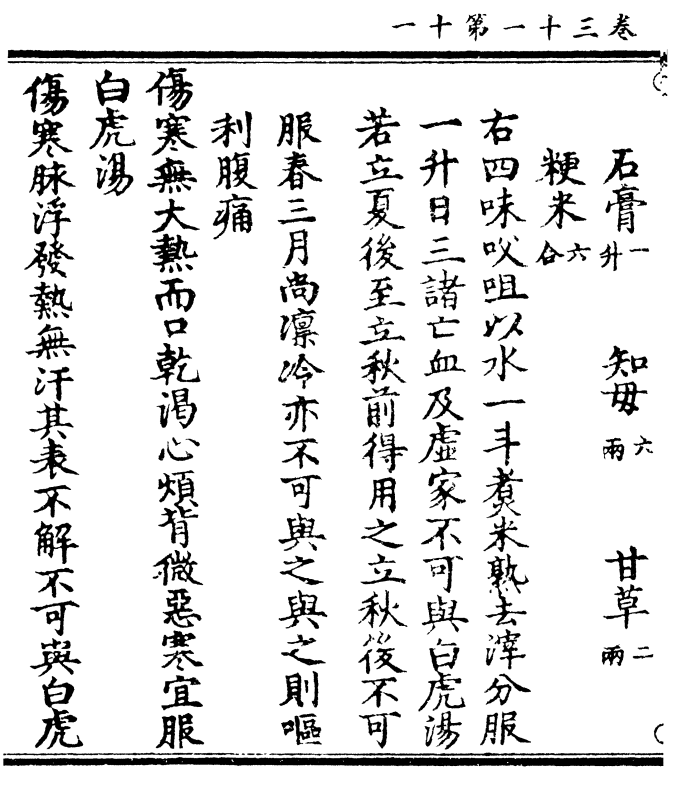 卷三十一第十一
石膏一升 知母六兩 甘草二兩
粳米六合
右四味㕮咀以水一斗煮米熟去滓分服
一升日三諸亡血及虛家不可與白虎湯
若立夏後至立秋前得用之立秋後不可
服春三月尚凛冷亦不可與之與之則嘔
利腹痛
傷寒無大熱而口乾渴心煩背微惡寒宜服
白虎湯
傷寒脉浮發熱無汗其表不解不可與白虎